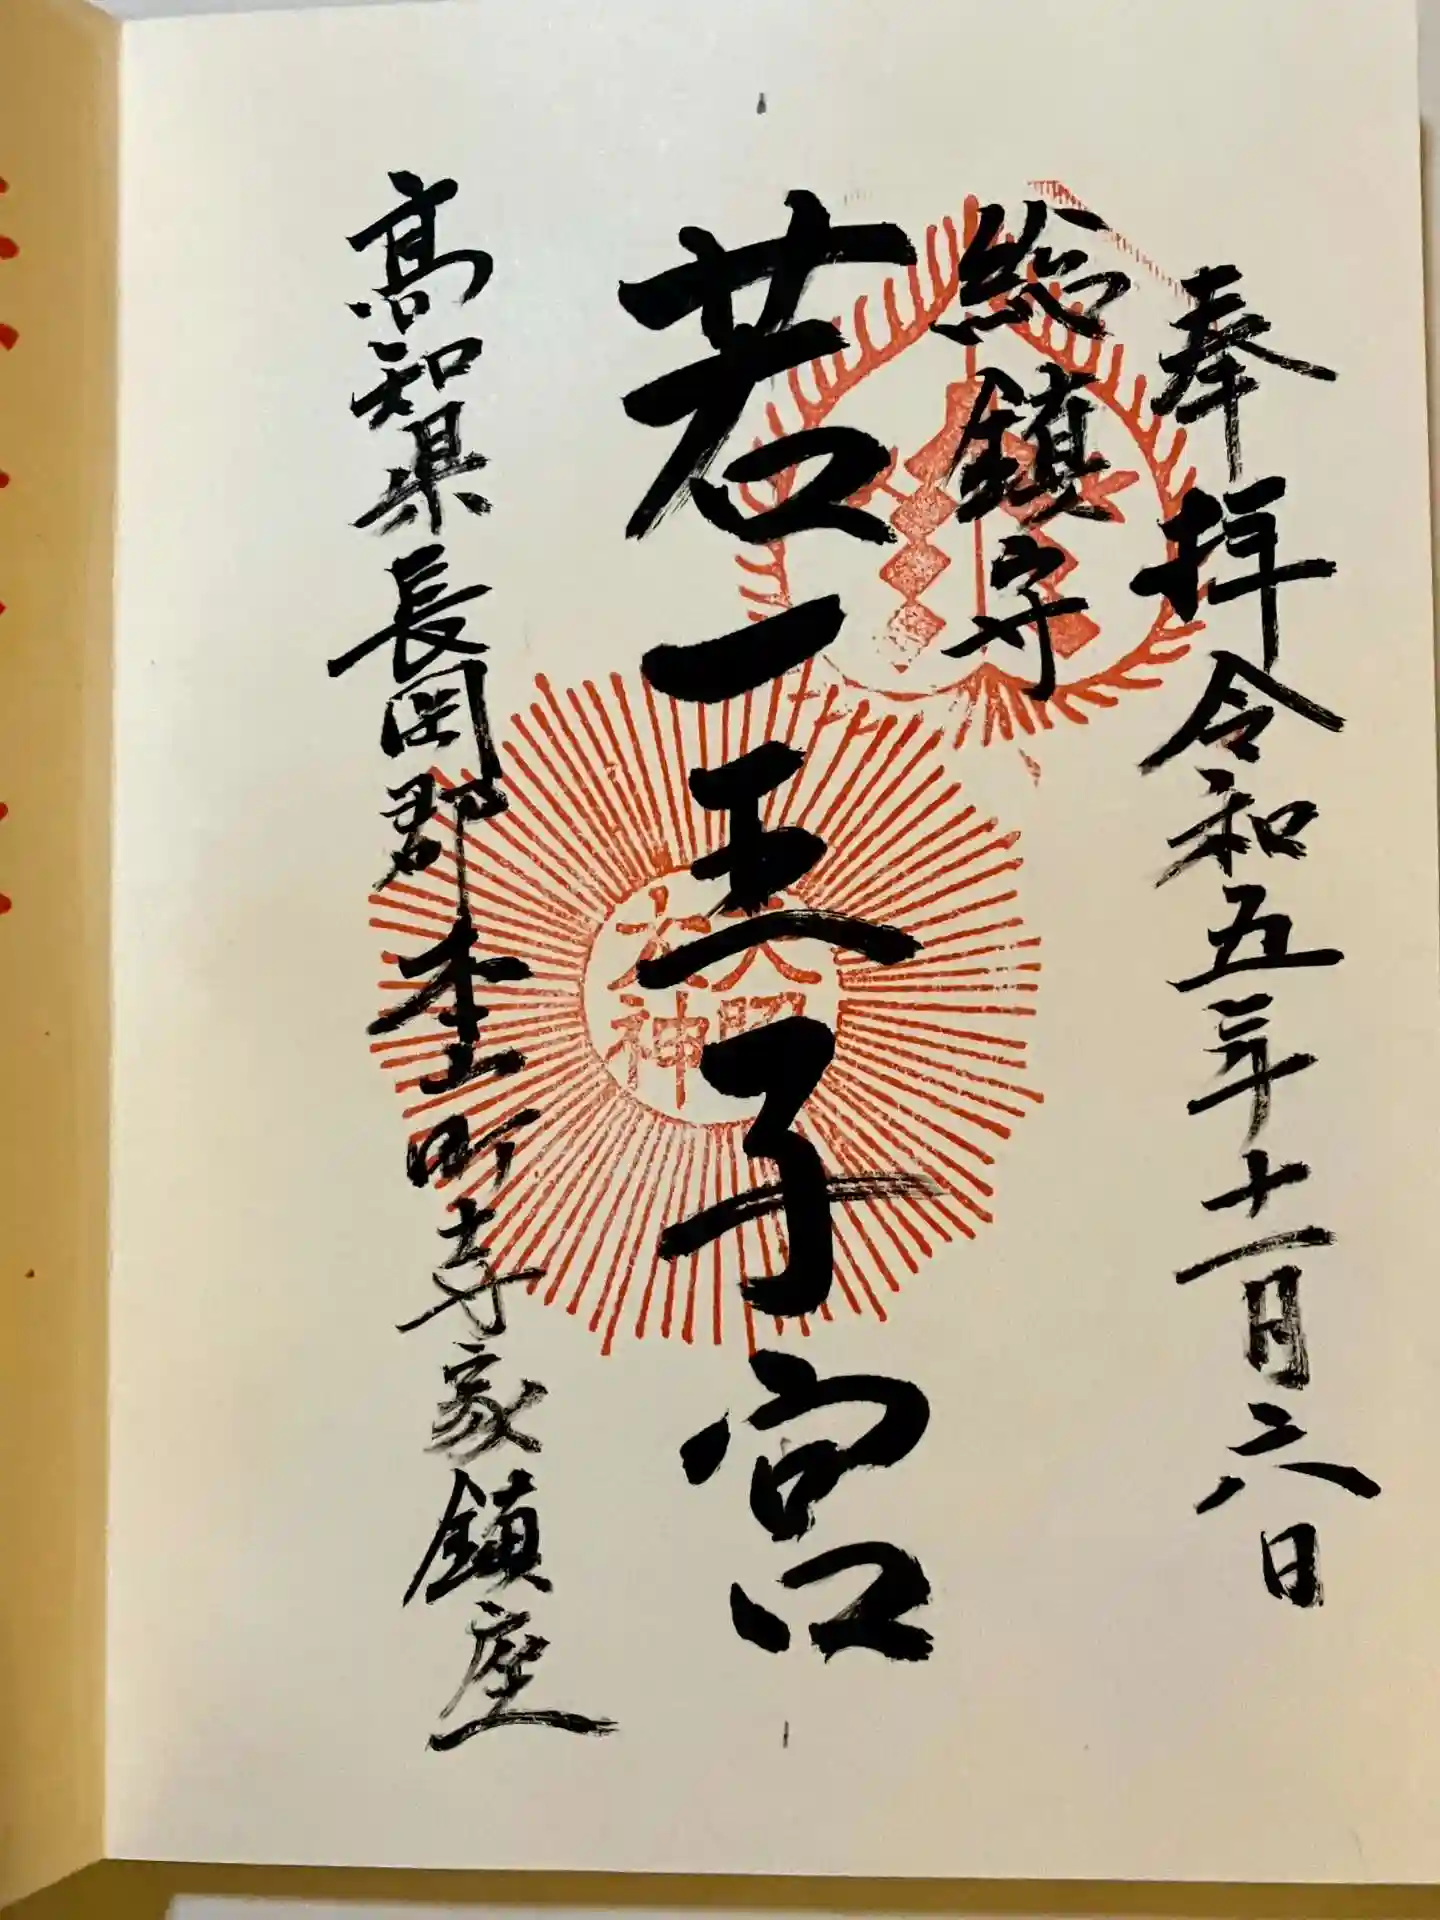 奉拝令和五年十一月六日
総鎮守
若一王子宮
高知県長岡郡本山町寺家鎮座
天照
大神